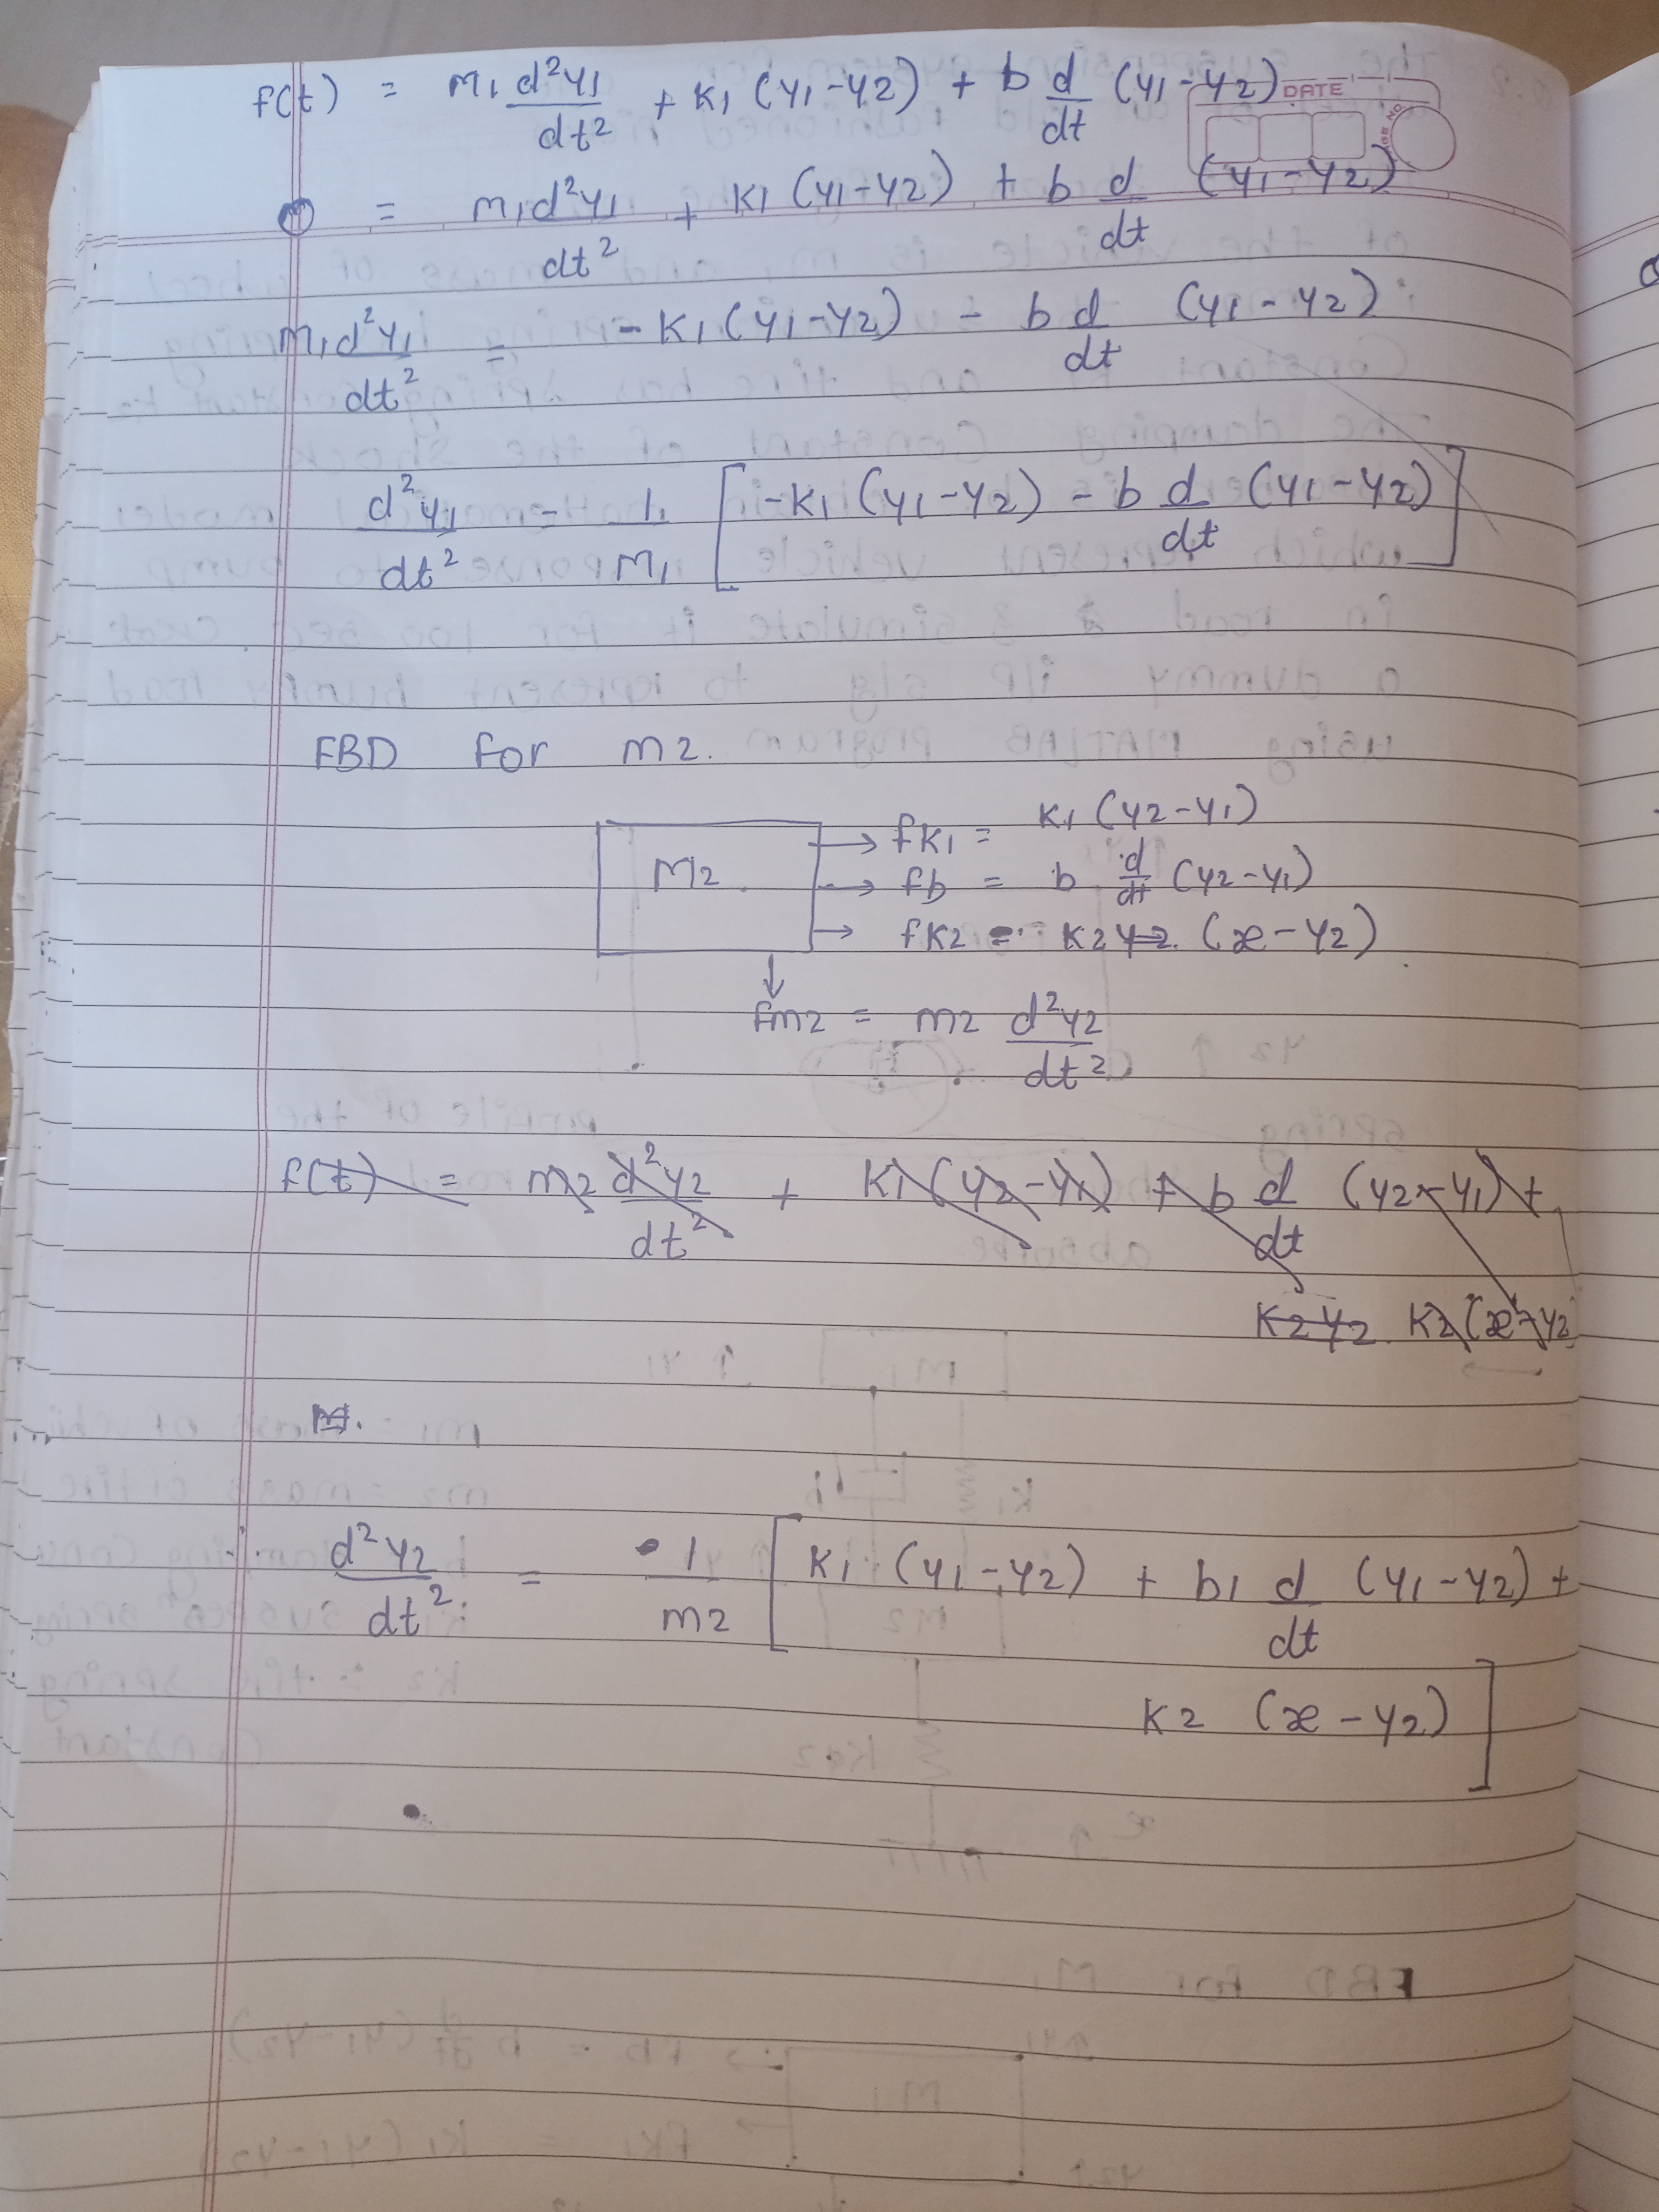 DATE
f(t) = m1 d²y1/dt² + k1 (y1-y2) + b d/dt (y1-y2)
0 = m1 d²y1/dt² + k1 (y1-y2) + b d/dt (y1-y2)
m1 d²y1/dt² = -k1 (y1-y2) - b d/dt (y1-y2)
d²y1/dt² = 1/m1 [-k1 (y1-y2) - b d/dt (y1-y2)]
FBD for m2.
M2
→ fk1 = k1 (y2-y1)
→ fb = b d/dt (y2-y1)
→ fk2 = k2 y2 (x-y2)
↓
fm2 = m2 d²y2/dt²
f(t) = m2 d²y2/dt² + k1 (y2-y1) + b d/dt (y2-y1) +
k2 y2 k2 (x-y2)
d²y2/dt² = 1/m2 [k1 (y1-y2) + b1 d/dt (y1-y2) +
k2 (x-y2)]